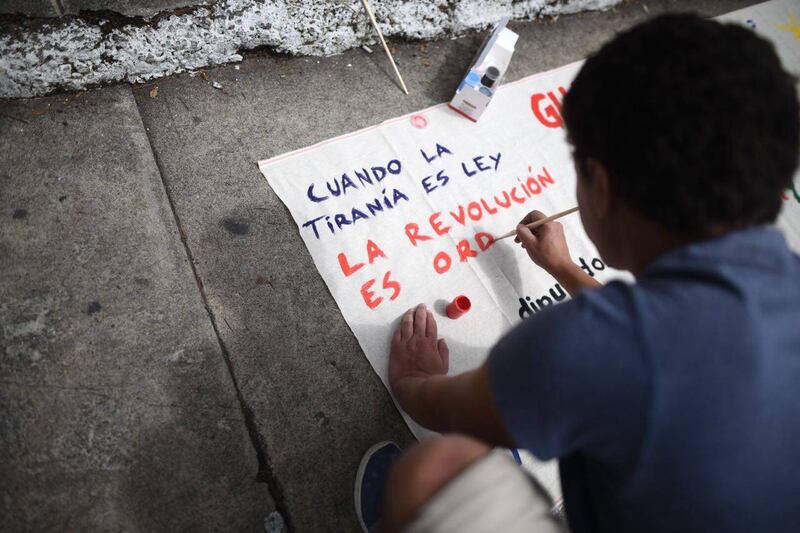 CUANDO LA
TIRANÍA ES LEY
LA REVOLUCIÓN
ES ORD
GU
diputado